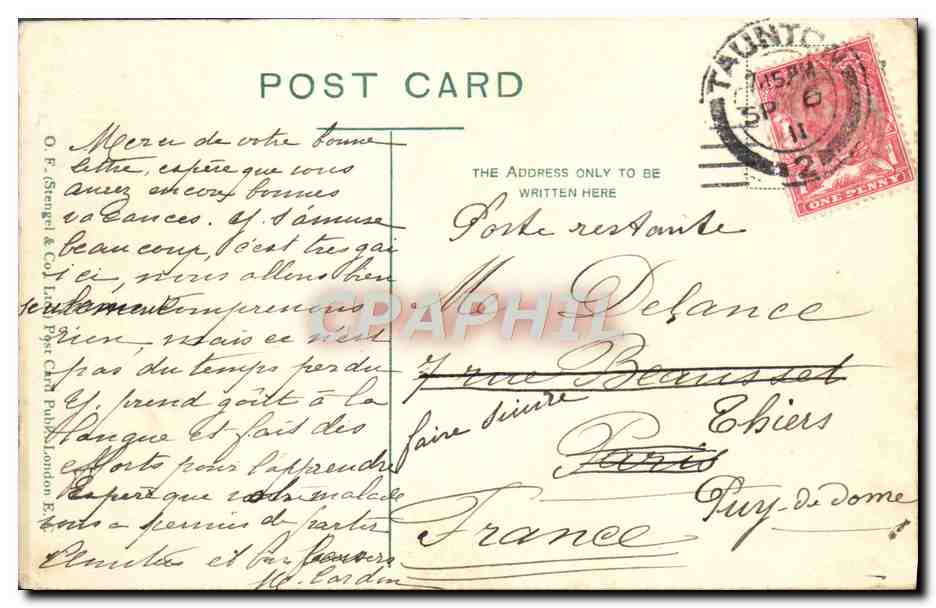 POST CARD
Merci de votre bonne
lettre, espère que vous
avez encore bonnes
vacances. Y. s'amuse
beaucoup, c'est tres gai
ici, nous allons bien
seulement comprenons
rien, mais ce n'est
pas du temps perdu
Y. prend goût à la
langue et fait des
efforts pour l'apprendre
Espère que votre malade
vous a permis de partir
Amitiés et
M. Cardin
O. F. (Stengel & Co.) Ltd. Post Card Publ. London E.C.
THE ADDRESS ONLY TO BE
WRITTEN HERE
Poste restante
Me Delance
7 rue Beausset
faire suivre
Thiers
Paris
Puy-de-dome
France
TAUNTON
7.15 PM
SP 6
11
2
ONE PENNY
1
CPAPHIL